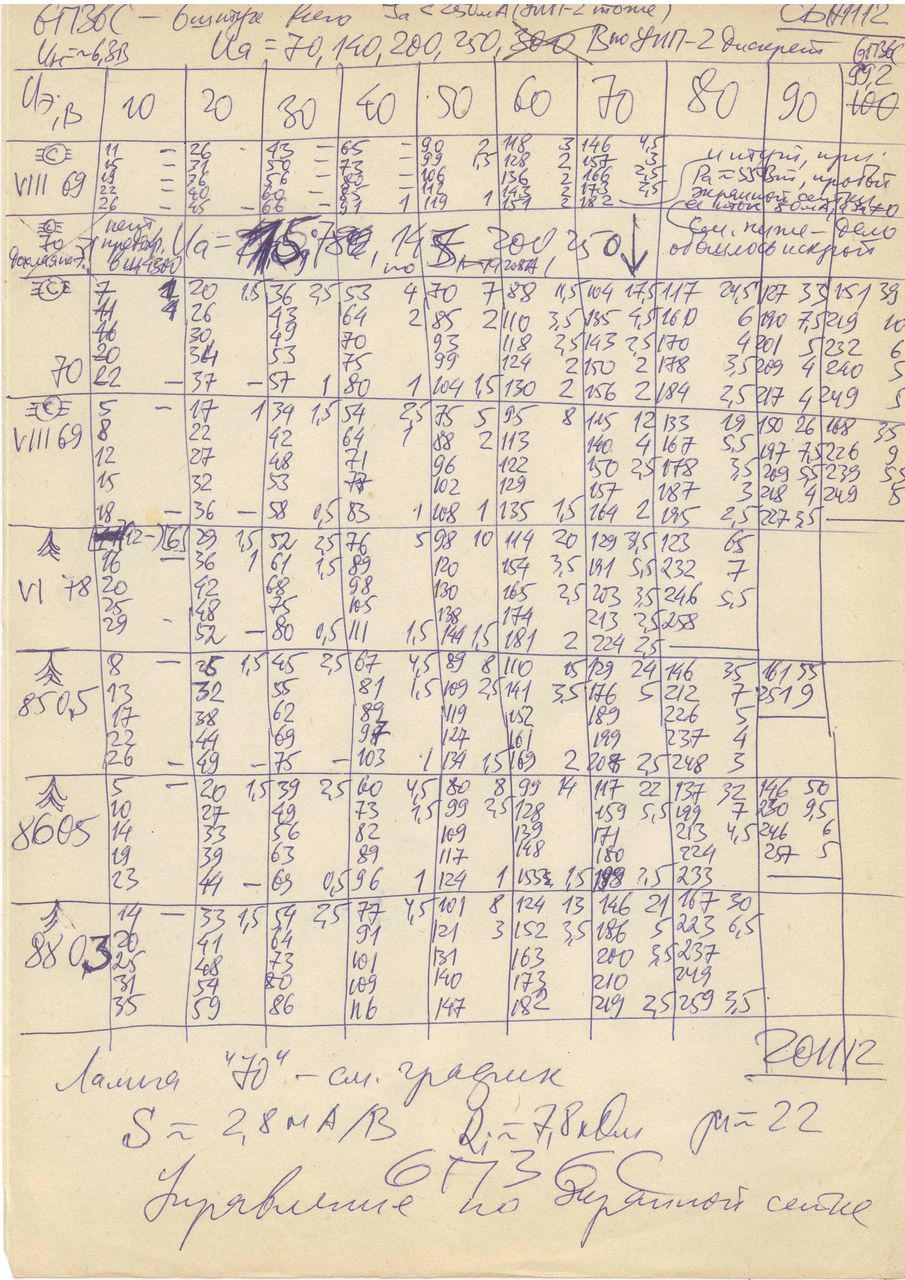 6П36С – 6 штук всего Ia < 250мА (УИП-2 тоже)
Uн=~6,3В Ua = 70, 140, 200, 250, 300 В по УИП-2 дискрет 6П36С
Uэ,В 10 20 30 40 50 60 70 80 90 99,2 100
VIII 69
11 – 26 – 43 – 65 – 90 2 118 3 146 4,5
15 31 50 73 99 1,5 128 2 157 3
19 36 56 80 106 136 2 166 2,5
22 40 60 85 112 143 2 173 2,5
26 – 45 – 66 – 91 1 119 1 151 2 182
Ua = 75, 78, 145, 200 250
70
7 1 20 1,5 36 2,5 53 4 70 7 88 11,5 104 17,5 117 24,5 127 33 151 39
11 26 43 64 2 85 2 110 3,5 135 4,5 160 6 190 7,5 219 10
16 30 49 70 93 118 2,5 143 2,5 170 4 201 5 232 6
20 34 53 75 99 124 2 150 2 178 3,5 209 4 240 5
22 – 37 – 57 1 80 1 104 1,5 130 2 156 2 184 2,5 217 4 249 5
VIII 69
5 – 17 1 34 1,5 54 2,5 75 5 95 8 115 12 133 19 150 26 168 35
8 22 42 64 1 88 2 113 140 4 167 5,5 197 7,5 226 9
12 27 48 71 96 122 150 2,5 178 3,5 209 5,5 239 5,5
15 32 53 77 102 129 157 187 3 218 4 249 5
18 – 36 – 58 0,5 83 1 108 1 135 1,5 164 2 195 2,5 227 3,5
VI 78
(12–) [6] 29 1,5 52 2,5 76 5 98 10 114 20 129 3,5 123 65
16 – 36 1 61 1,5 89 120 154 3,5 191 5,5 232 7
20 42 68 98 130 165 2,5 203 3,5 246 5,5
25 48 75 105 138 174 213 2,5 258
29 – 52 – 80 0,5 111 1,5 144 1,5 181 2 224 2,5
850,5
8 – 25 1,5 45 2,5 67 4,5 89 8 110 15 129 24 146 35 161 55
13 32 55 81 1,5 109 2,5 141 3,5 176 5 212 7 251 9
17 38 62 89 119 152 189 226 5
22 44 69 97 127 161 199 237 4
26 – 49 – 75 – 103 1 134 1,5 169 2 208 2,5 248 3
8605
5 – 20 1,5 39 2,5 60 4,5 80 8 99 14 117 22 137 32 146 50
10 27 49 73 1,5 99 2,5 128 159 5,5 199 7 230 9,5
14 33 56 82 109 139 171 213 4,5 246 6
19 39 63 89 117 148 180 224 257 5
23 44 – 69 0,5 96 1 124 1 1,5 2,5 233
880,3
14 – 33 1,5 54 2,5 77 4,5 101 8 124 13 146 21 167 30
20 41 64 91 121 3 152 3,5 186 5 223 6,5
25 48 73 101 131 163 200 3,5 237
31 54 80 109 140 173 210 249
35 59 86 116 147 182 219 2,5 259 3,5
Лампа "70" – см. график
S ≈ 2,8 мА/В Ri ≈ 7,8 кОм μ ≈ 22
6П36С
Управление по экранной сетке